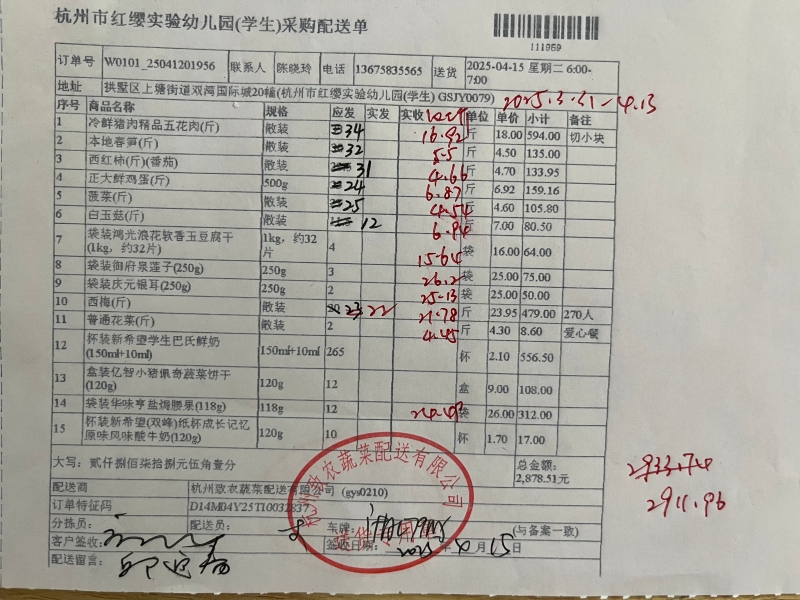 杭州市红缨实验幼儿园(学生)采购配送单
111959
订单号 W0101_25041201956 联系人 陈晓玲 电话 13675835565 送货 2025-04-15 星期二 6:00-7:00
地址 拱墅区上塘街道双湾国际城20幢(杭州市红缨实验幼儿园(学生) GSJY0079) 2025.3.31-4.13
序号 商品名称 规格 应发 实发 实收 单位 单价 小计 备注
1 冷鲜猪肉精品五花肉(斤) 散装 34 16.92 斤 18.00 594.00 切小块
2 本地春笋(斤) 散装 32 5.5 斤 4.50 135.00
3 西红柿(斤)(番茄) 散装 31 4.66 斤 4.70 133.95
4 正大鲜鸡蛋(斤) 500g 24 6.87 斤 6.92 159.16
5 菠菜(斤) 散装 25 4.54 斤 4.60 105.80
6 白玉菇(斤) 散装 12 6.94 斤 7.00 80.50
7 袋装鸿光浪花软香玉豆腐干(1kg,约32片) 1kg,约32片 4 15.64 袋 16.00 64.00
8 袋装御府泉莲子(250g) 250g 3 26.2 袋 25.00 75.00
9 袋装庆元银耳(250g) 250g 2 25.13 袋 25.00 50.00
10 西梅(斤) 散装 23 22 21.78 斤 23.95 479.00 270人
11 普通花菜(斤) 散装 2 4.45 斤 4.30 8.60 爱心餐
12 杯装新希望学生巴氏鲜奶(150ml+10ml) 150ml+10ml 265 杯 2.10 556.50
13 盒装亿智小猪佩奇蔬菜饼干(120g) 120g 12 盒 9.00 108.00
14 袋装华味亨盐焗腰果(118g) 118g 12 袋 26.00 312.00
15 杯装新希望(双峰)纸杯成长记忆原味风味酸牛奶(120g) 120g 10 杯 1.70 17.00
大写:贰仟捌佰柒拾捌元伍角壹分 总金额:2,878.51元
2933.74
2911.96
配送商 杭州致农蔬菜配送有限公司 (gys0210)
订单特征码 D14M04Y25T10032837
分拣员: 配送员: 车牌: (与备案一致)
客户签收: 签收日期: 年 4 月 15 日
配送留言:
杭州致农蔬菜配送有限公司